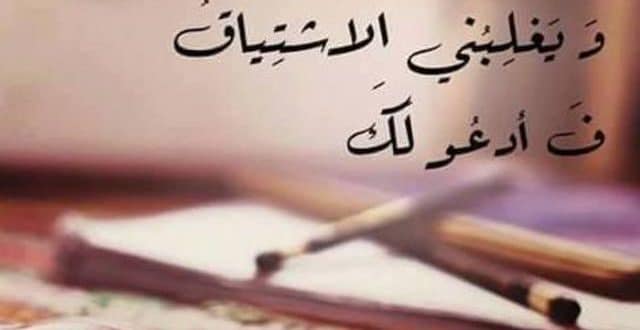 وَ يَغلِبُني الاشتِياقُ
فَ أدعُو لَكَِ